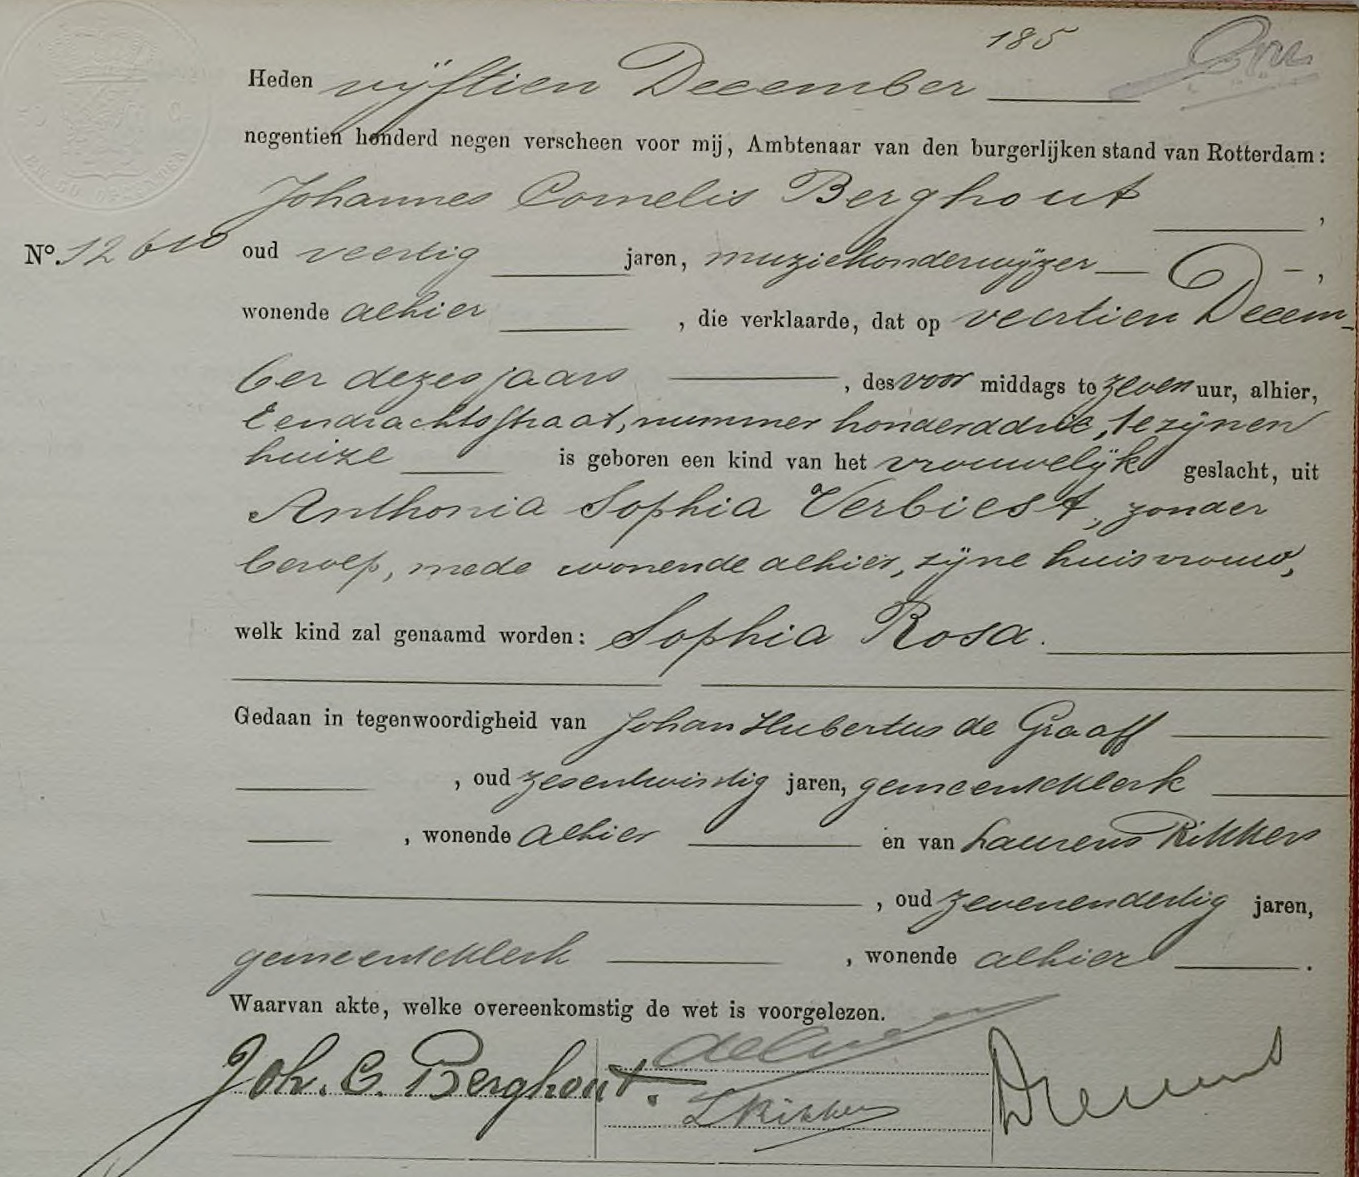 185
Heden vijftien December
negentien honderd negen verscheen voor mij, Ambtenaar van den burgerlijken stand van Rotterdam:
Johannes Cornelis Berghout,
No. 12610 oud veertig jaren, muziekonderwijzer,
wonende alhier, die verklaarde, dat op veertien Decem-
ber dezes jaars, des voor middags te zeven uur, alhier,
Eendrachtsstraat, nummer honderddrie, te zijnen
huize is geboren een kind van het vrouwelijk geslacht, uit
Anthonia Sophia Verbiest, zonder
beroep, mede wonende alhier, zijne huisvrouw,
welk kind zal genaamd worden: Sophia Rosa.
Gedaan in tegenwoordigheid van Johan Hubertus de Graaff
, oud zesentwintig jaren, gemeenteklerk
, wonende alhier en van Laurens Rikkers
, oud zevenendertig jaren,
gemeenteklerk, wonende alhier.
Waarvan akte, welke overeenkomstig de wet is voorgelezen.
Joh. C. Berghout.
L Rikkers